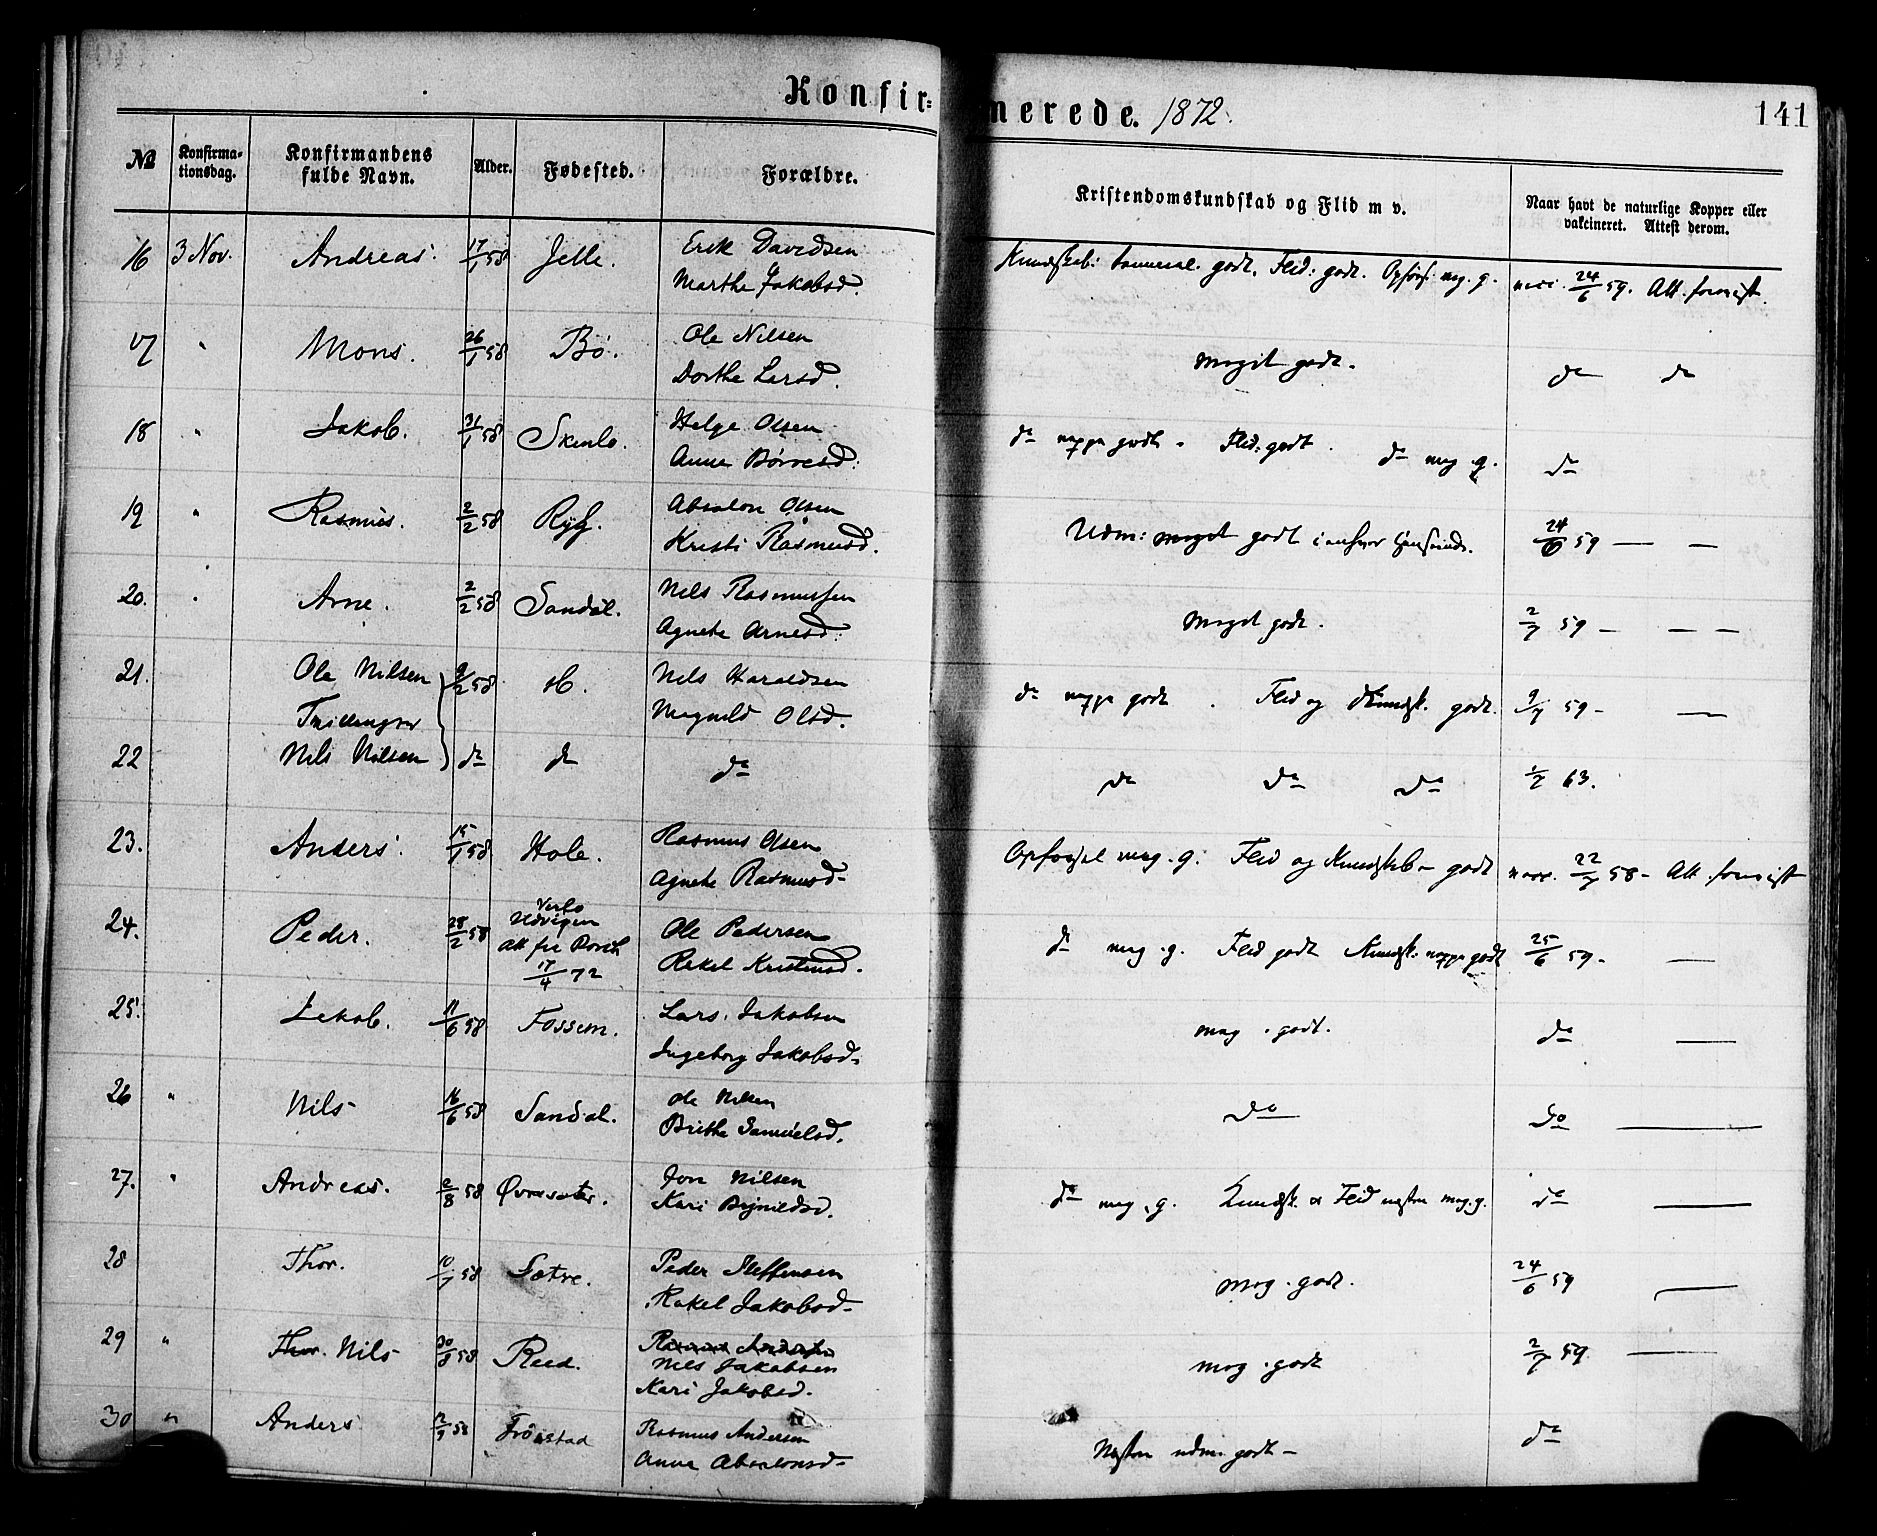 Konfirmerede. 1872.
141
No
Konfirmationsdag.
Konfirmandens fulde Navn.
Alder.
Fødested.
Forældre.
Kristendomskundskab og Flid m v.
Naar havt de naturlige Kopper eller vakcineret. Attest derom.
16 3 Nov. Andreas. 17/1 58 Jelle. Erik Davidsen
Marthe Jakobsd.
godt. Flid: godt. Opførs: meg. g. vacc. 24/6 59. Att. forevist.
17 " Mons. 26/1 58 Bø. Ole Nilsen
Dorthe Larsd.
Meget godt. do do
18 " Jakob. 31/1 58 Helge Olsen
Anna
do neppe godt. Flid: godt. do meg. g. do
19 " Rasmus. 2/2 58 Absalon Olsen
Kristi Rasmusd.
Udm: meget godt i enhver Henseende. 24/6 59 — —
20. " Arne. 2/2 58 Sandal. Nils Rasmussen
Agnete Arnesd.
Meget godt. 2/7 59 — — —
21. Ole Nilsen 9/2 58 Nils Haraldsen
Tvillinger
Magnild Olsd.
do neppe godt. Flid og Kundsk. godt. 2/7 59 — —
22 Nils Nilsen do do do
do do do 63.
23. Anders. 15/1 58 Hole. Rasmus Olsen
Agnete Rasmusd.
Opførsel meg. g. Flid og Kundskab godt vacc. 22/7 58 - Att. forevist
24. Peder. 28/2 58 Udvigen
Att fra
17/4 72
Ole Pedersen
Rakel Kristensd.
do meg. g. Flid godt Kundsk. neppe godt 25/6 59 — —
25. Jakob. 11/6 58 Fossem. Lars Jakobsen
Ingeborg Jakobsd.
meg. godt. do —
26 " Nils 16/6 58 Sandal. Ole Nilsen
Brithe Samuelsd.
do do —
27. " Andreas. 2/8 58 Jon Nilsen
Kari
do meg. g. Kundsk. og Flid næsten meg. g. do —
28 Thor. 10/7 58 Sætre. Peder Steffensen
Rakel Jakobsd.
meg. godt. 24/6 59 —
29 " Thor. Nils 30/8 58 Reed. Rasmus Andersen
Nils Jakobsen
Kari Jakobsd.
meg. godt 2/7 59. —
30 " Anders 58 Fróistad Rasmus Andersen
Anna Absalonsd.
Næsten udm. godt — do